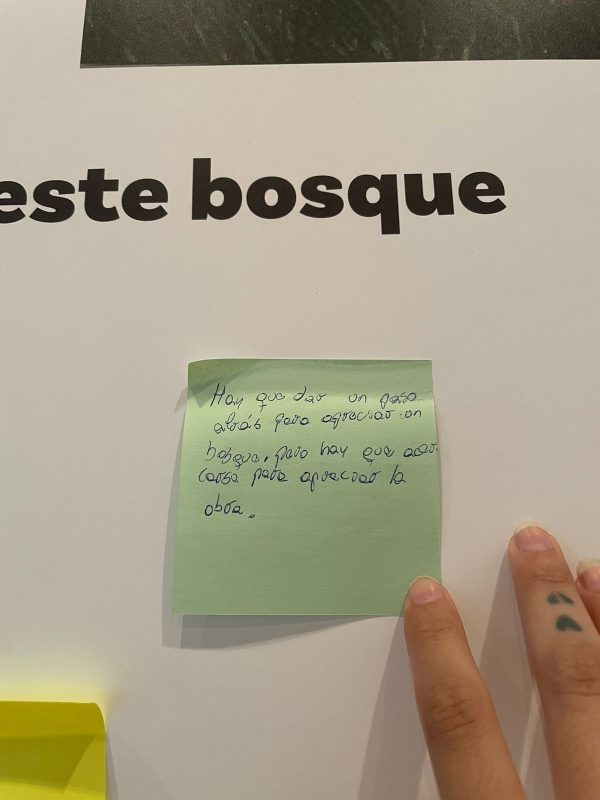 este bosque
Hay que dar un paso
atrás para apreciar un
bosque, pero hay que acer-
carse para apreciar la
obra.